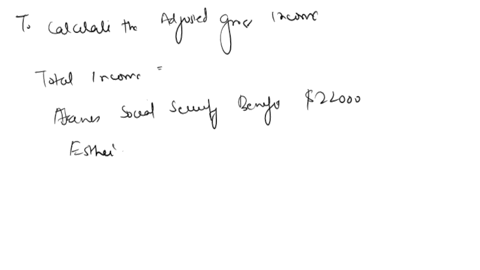 To Calculate the Adjusted gross Income
Total Income =
Social Security Benefit $22000
Esther